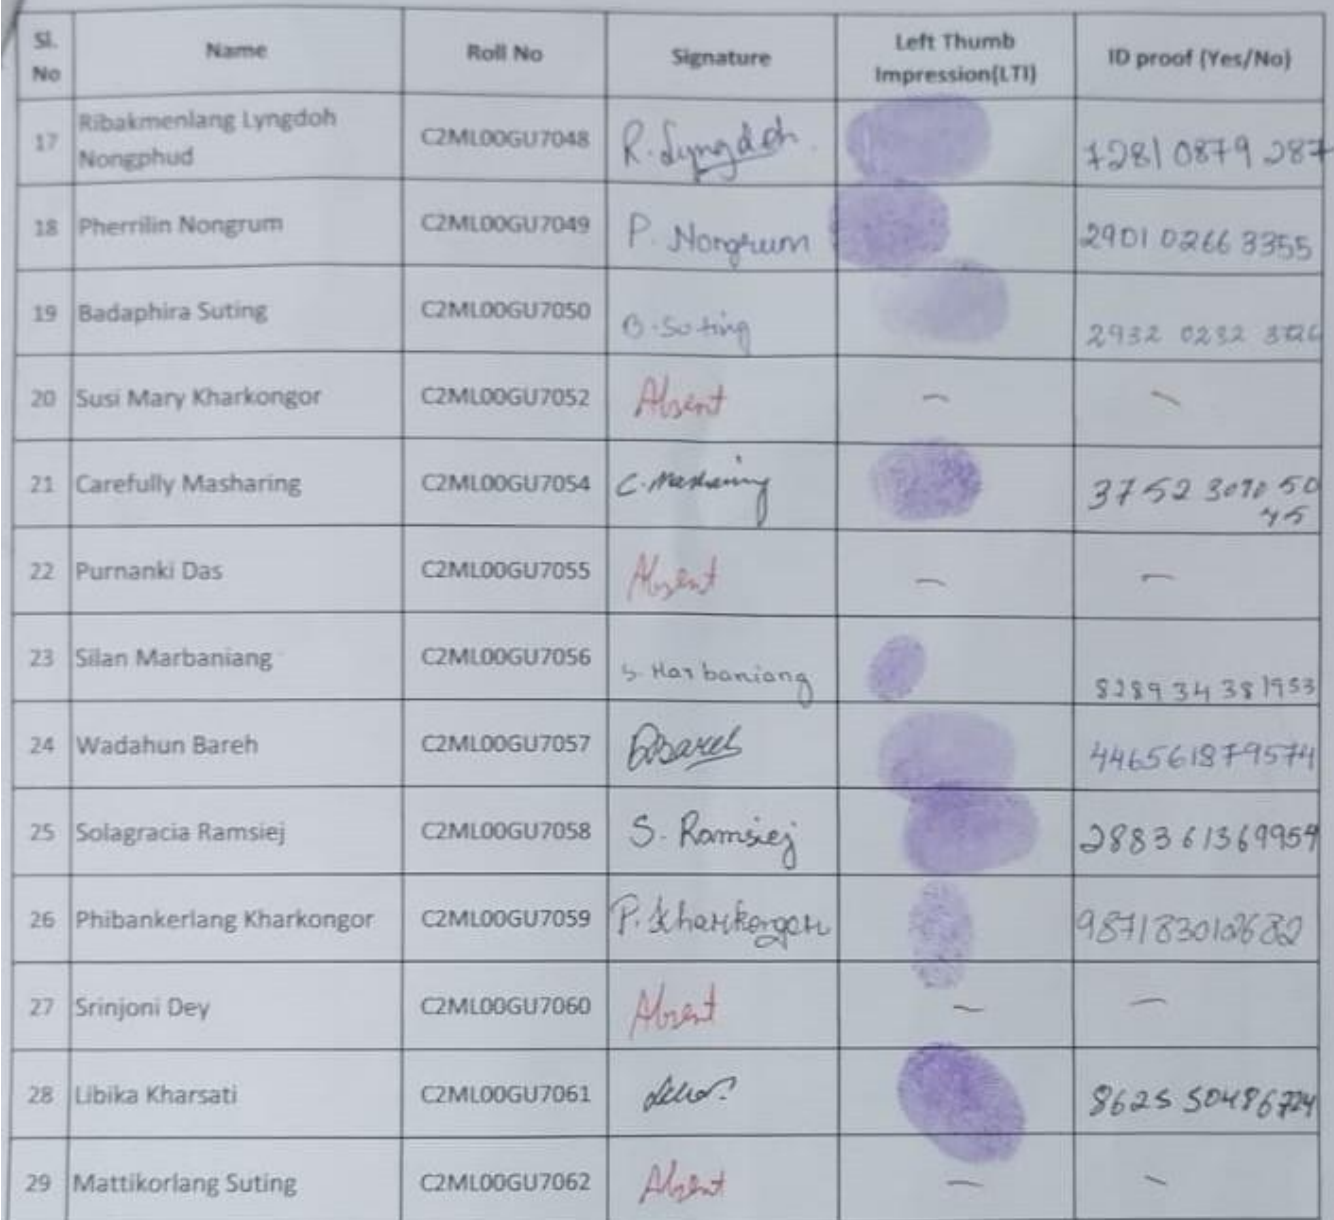 Sl. No Name Roll No Signature Left Thumb Impression(LTI) ID proof (Yes/No)
17 Ribakmenlang Lyngdoh Nongphud C2ML00GU7048 R. Lyngdoh 7281 0879 287
18 Pherrilin Nongrum C2ML00GU7049 P. Nongrum 2901 0266 3355
19 Badaphira Suting C2ML00GU7050 B. Suting 2932 0232
20 Susi Mary Kharkongor C2ML00GU7052 Absent — —
21 Carefully Masharing C2ML00GU7054 C. Masharing 3752 3090 50
45
22 Purnanki Das C2ML00GU7055 Absent — —
23 Silan Marbaniang C2ML00GU7056 S. Marbaniang 8289 34 38 1933
24 Wadahun Bareh C2ML00GU7057 446561879574
25 Solagracia Ramsiej C2ML00GU7058 S. Ramsiej 288361369954
26 Phibankerlang Kharkongor C2ML00GU7059 P. Kharkongor 987183012682
27 Srinjoni Dey C2ML00GU7060 Absent — —
28 Libika Kharsati C2ML00GU7061 8625 50486724
29 Mattikorlang Suting C2ML00GU7062 Absent — —